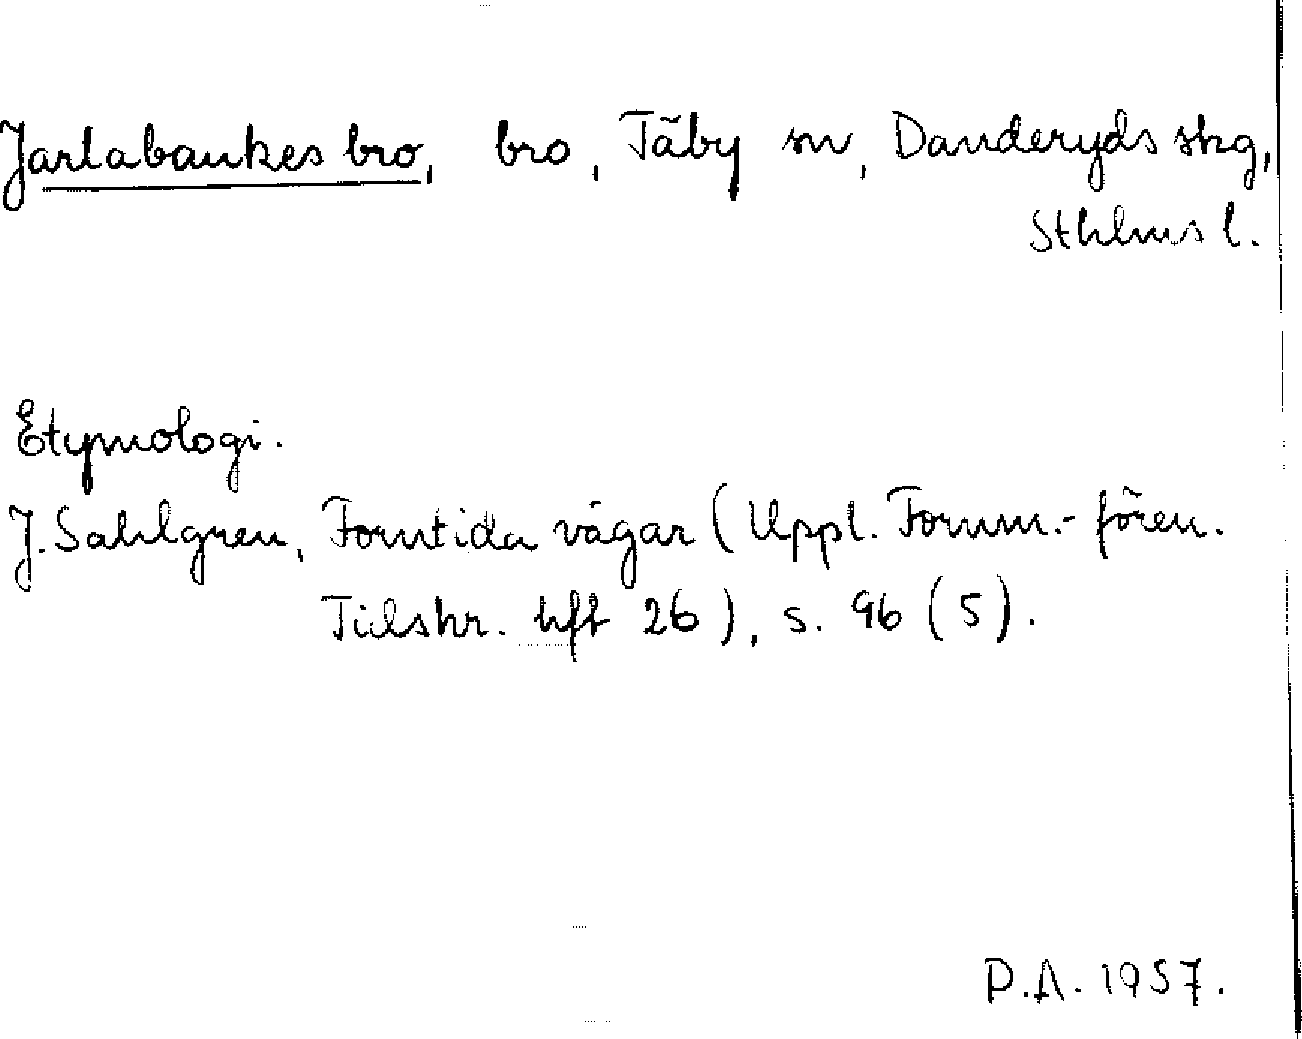 Jarlabankes bro, bro, Täby sn, Danderyds skg,
Sthlms l.
Etymologi.
J. Sahlgren, Forntida vägar (Uppl. Fornm.-fören.
Tidskr. hft 26), s. 96 (5).
P.A. 1957.